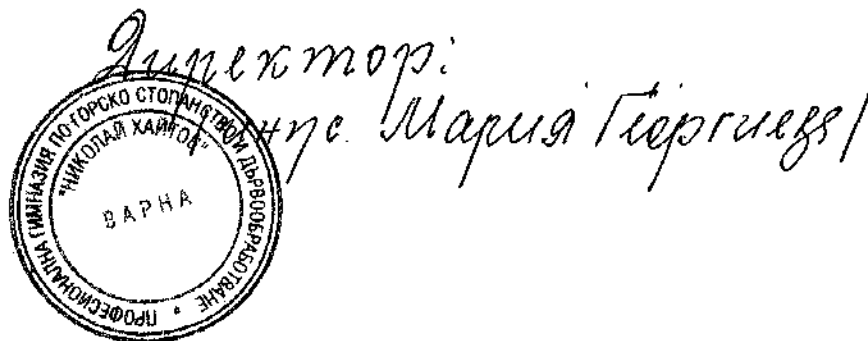 Директор:
/инж. Мария Георгиева/
ПРОФЕСИОНАЛНА ГИМНАЗИЯ ПО ГОРСКО СТОПАНСТВО И ДЪРВООБРАБОТВАНЕ
"НИКОЛАЙ ХАЙТОВ"
ВАРНА